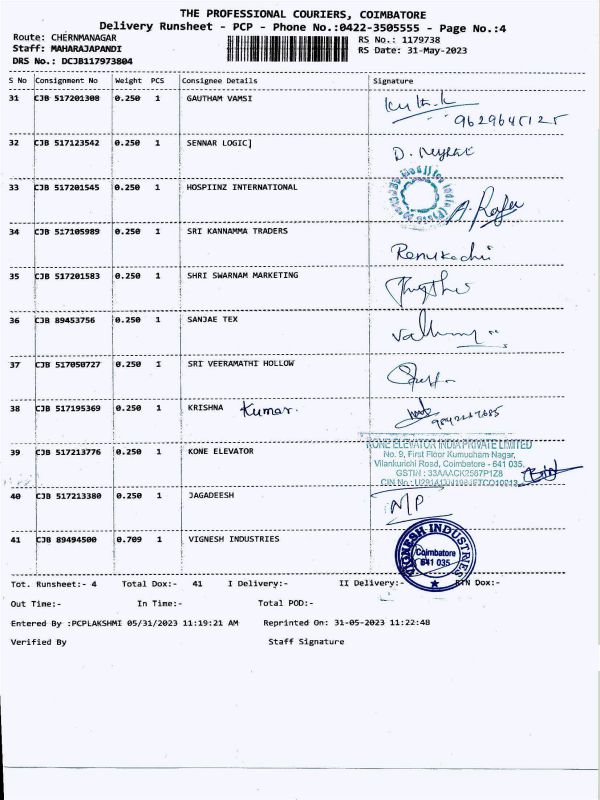 THE PROFESSIONAL COURIERS, COIMBATORE
Delivery Runsheet - PCP - Phone No.:0422-3505555 - Page No.:4
Route: CHERNMANAGAR
RS No.: 1179738
Staff: MAHARAJAPANDI
RS Date: 31-May-2023
DRS No.: DCJB117973804
S No Consignment No Weight PCS Consignee Details Signature
31 CJB 517201308 0.250 1 GAUTHAM VAMSI
9629645125
32 CJB 517123542 0.250 1 SENNAR LOGIC]
33 CJB 517201545 0.250 1 HOSPIINZ INTERNATIONAL
34 CJB 517105989 0.250 1 SRI KANNAMMA TRADERS
35 CJB 517201583 0.250 1 SHRI SWARNAM MARKETING
36 CJB 89453756 0.250 1 SANJAE TEX
37 CJB 517050727 0.250 1 SRI VEERAMATHI HOLLOW
38 CJB 517195369 0.250 1 KRISHNA Kumar.
39 CJB 517213776 0.250 1 KONE ELEVATOR
KONE ELEVATOR INDIA PRIVATE LIMITED
No. 9, First Floor Kumudham Nagar,
Vilankurichi Road, Coimbatore - 641 035.
40 CJB 517213380 0.250 1 JAGADEESH
MP
41 CJB 89494500 0.709 1 VIGNESH INDUSTRIES
VIGNESH INDUSTRIES
Coimbatore
641 035
Tot. Runsheet:- 4 Total Dox:- 41 I Delivery:- II Delivery:- Dox:-
Out Time:- In Time:- Total POD:-
Entered By :PCPLAKSHMI 05/31/2023 11:19:21 AM Reprinted On: 31-05-2023 11:22:48
Verified By Staff Signature